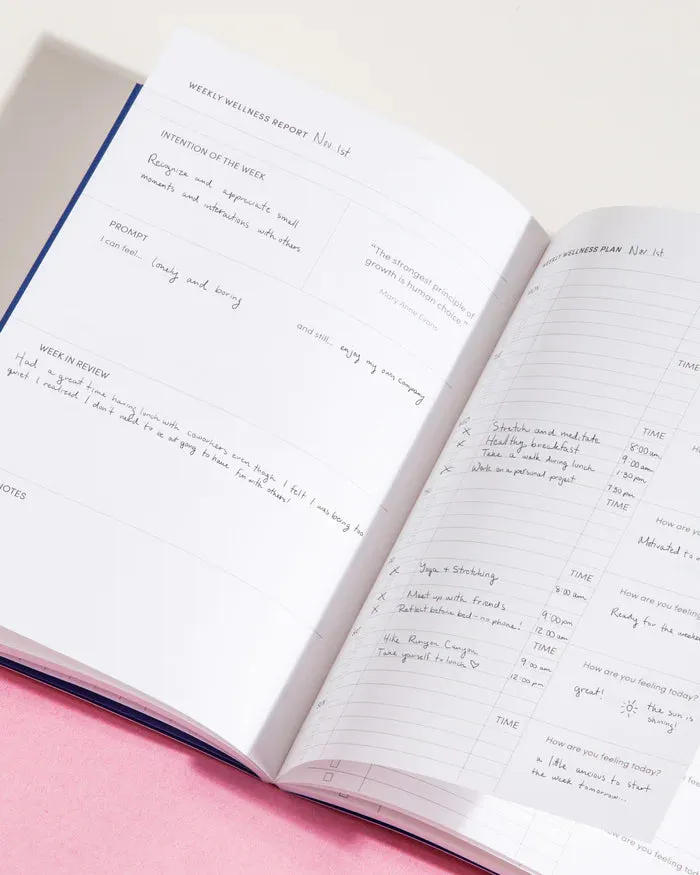 WEEKLY WELLNESS REPORT Nov. 1st
INTENTION OF THE WEEK
Recognize and appreciate small
moments and interactions with others.
"The strongest principle of
growth is human choice."
Mary Anne Evans
PROMPT
I can feel... lonely and boring
and still... enjoy my own company
WEEK IN REVIEW
Had a great time having lunch with coworkers even though I felt I was being too
quiet. I realized I don't need to be at going to have fun with others!
NOTES
WEEKLY WELLNESS PLAN Nov. 1st
TIME
TIME
X Stretch and meditate 8:00 am
X Healthy breakfast 9:00 am
Take a walk during lunch 1:30 pm
X Work on a personal project 7:30 pm
How are you fee
Motivated to
TIME
X Yoga + Stretching 8:00 am
X Meet up with friends 9:00 pm
X Reflect before bed - no phone! 12:00 am
How are you feeling
Ready for the weeke
TIME
Hike Runyon Canyon 9:00 am
Take yourself to lunch ♡ 12:00 pm
How are you feeling today?
great! the sun is
shining!
TIME
How are you feeling today?
a little anxious to start
the week tomorrow...
ow are you feeling